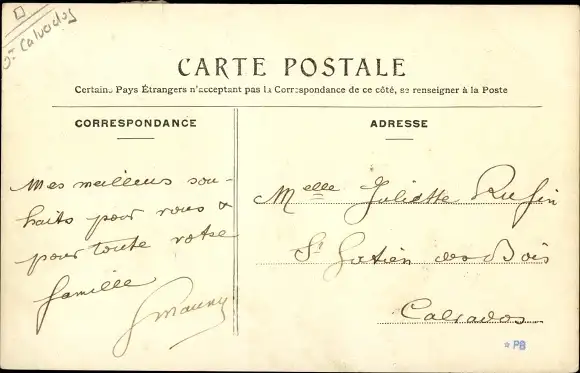 Calvados
CARTE POSTALE
Certains Pays Étrangers n'acceptant pas la Correspondance de ce côté, se renseigner à la Poste
CORRESPONDANCE
Mes meilleurs sou-
haits pour vous &
pour toute votre
famille
ADRESSE
Melle Juliette Rufin
St Gatien des Bois
Calvados
* PB